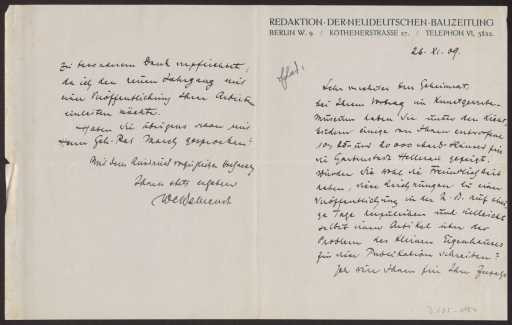 REDAKTION · DER · NEUDEUTSCHEN · BAUZEITUNG
BERLIN W. 9 / KÖTHENERSTRASSE 27. / TELEPHON VI, 5822.
26. XI. 09.
Sehr verehrter Herr Geheimrat,
bei Ihrem Vortrag im Kunstgewerbe-
Museum haben Sie unter den Licht-
bildern einige von Ihnen entworfene
und Häuser für
die Gartenstadt Hellerau gezeigt.
Würden Sie wohl die Freundlichkeit
haben, diese Zeichnungen zu einer
Veröffentlichung in der N. B. auf einige
Tage und vielleicht
selbst einen Artikel über das
Problem des kleinen Eigenhauses
für die Publikation schreiben?
Ich bin Ihnen für Ihre Zusage
zu besonderem Dank verpflichtet,
da ich den neuen Jahrgang mit
einer Veröffentlichung Ihrer Arbeiten
einleiten möchte.
Haben Sie übrigens schon mit
Herrn Geh.-Rat March gesprochen?
Mit dem Ausdruck vorzüglicher Hochachtung
Ihnen stets ergeben